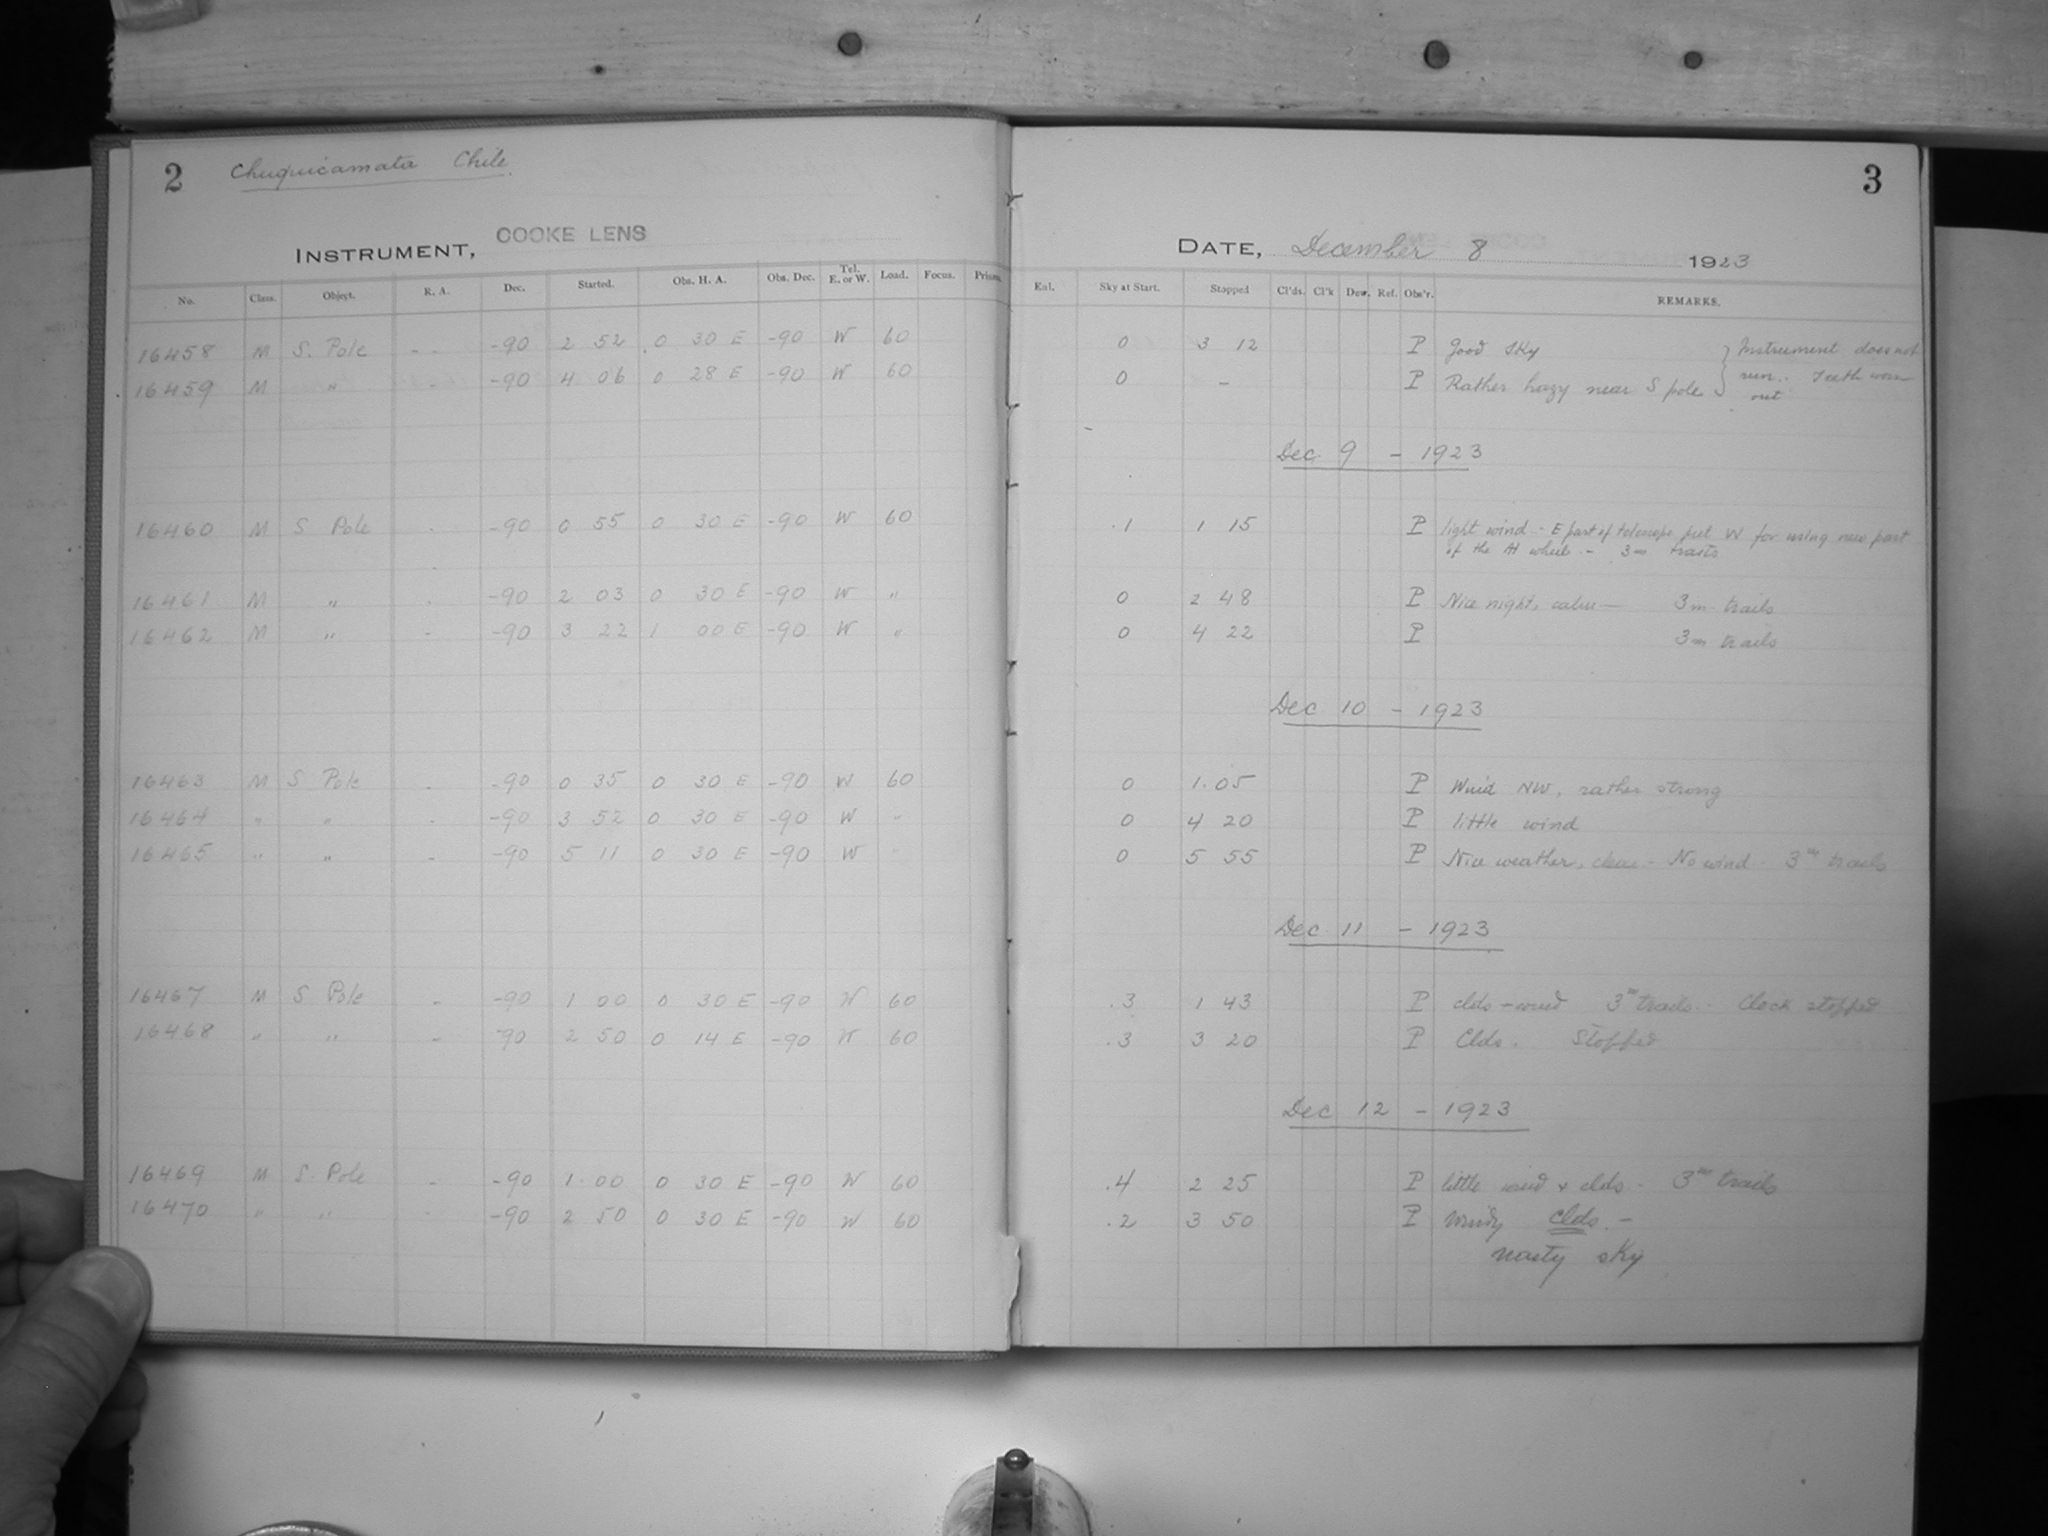 2 Chuquicamata Chile.
INSTRUMENT, COOKE LENS
No. Class. Object. R. A. Dec. Started. Obs. H. A. Obs. Dec. Tel. E. or W. Load. Focus. Prisms.
16458 M S. Pole - - -90 2 52 0 30 E -90 W 60
16459 M " - -90 4 06 0 28 E -90 W 60
16460 M S Pole - -90 0 55 0 30 E -90 W 60
16461 M " - -90 2 03 0 30 E -90 W "
16462 M " - -90 3 22 1 00 E -90 W "
16463 M S Pole - -90 0 35 0 30 E -90 W 60
16464 " " - -90 3 52 0 30 E -90 W "
16465 " " - -90 5 11 0 30 E -90 W "
16467 M S Pole - -90 1 00 0 30 E -90 W 60
16468 " " - -90 2 50 0 14 E -90 W 60
16469 M S. Pole - -90 1.00 0 30 E -90 W 60
16470 " " - -90 2 50 0 30 E -90 W 60
3
DATE, December 8 1923
Sky at Start. Stopped Cl'ds. Cl'k Dew. Ref. Obs'r. REMARKS.
0 3 12 P Good sky } Instrument does not
0 - P Rather hazy near S pole run. Teeth worn
out
Dec 9 - 1923
.1 1 15 P light wind - E part of telescope put W for using new part
of the AH wheel - 3m trails
0 2 48 P Nice night, calm — 3m trails
0 4 22 P 3m trails
Dec 10 - 1923
0 1.05 P Wind NW, rather strong
0 4 20 P little wind
0 5 55 P Nice weather, clear - No wind - 3m trails
Dec 11 - 1923
.3 1 43 P clds - wind 3m trails - Clock stopped
.3 3 20 P Clds. Stopped
Dec 12 - 1923
.4 2 25 P little wind & clds - 3m trails
.2 3 50 P Windy clds. -
nasty sky